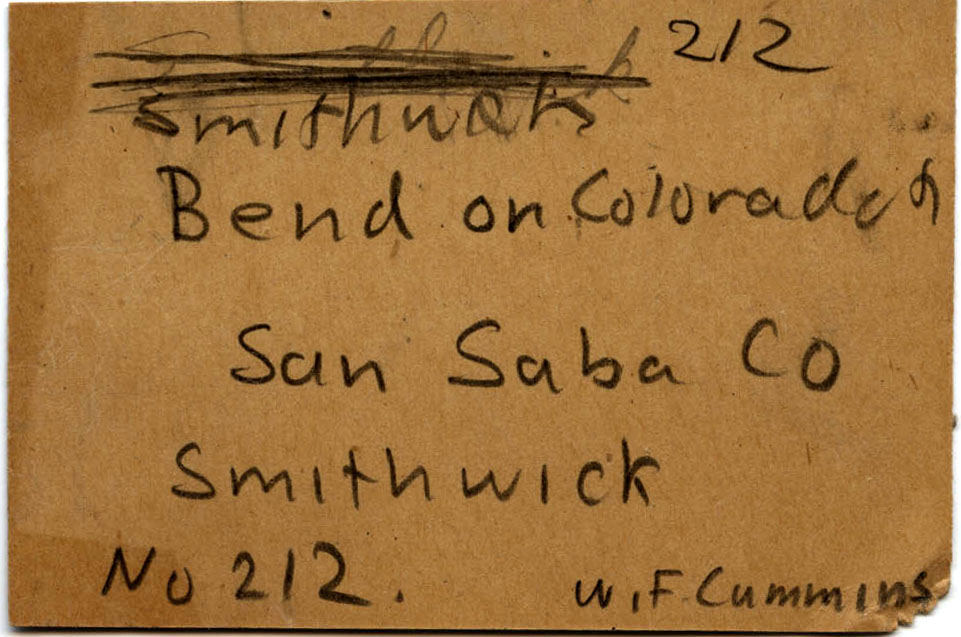 212
Smithwick
Bend on Colorado R
San Saba Co
Smithwick
No 212.
W.F. Cummins